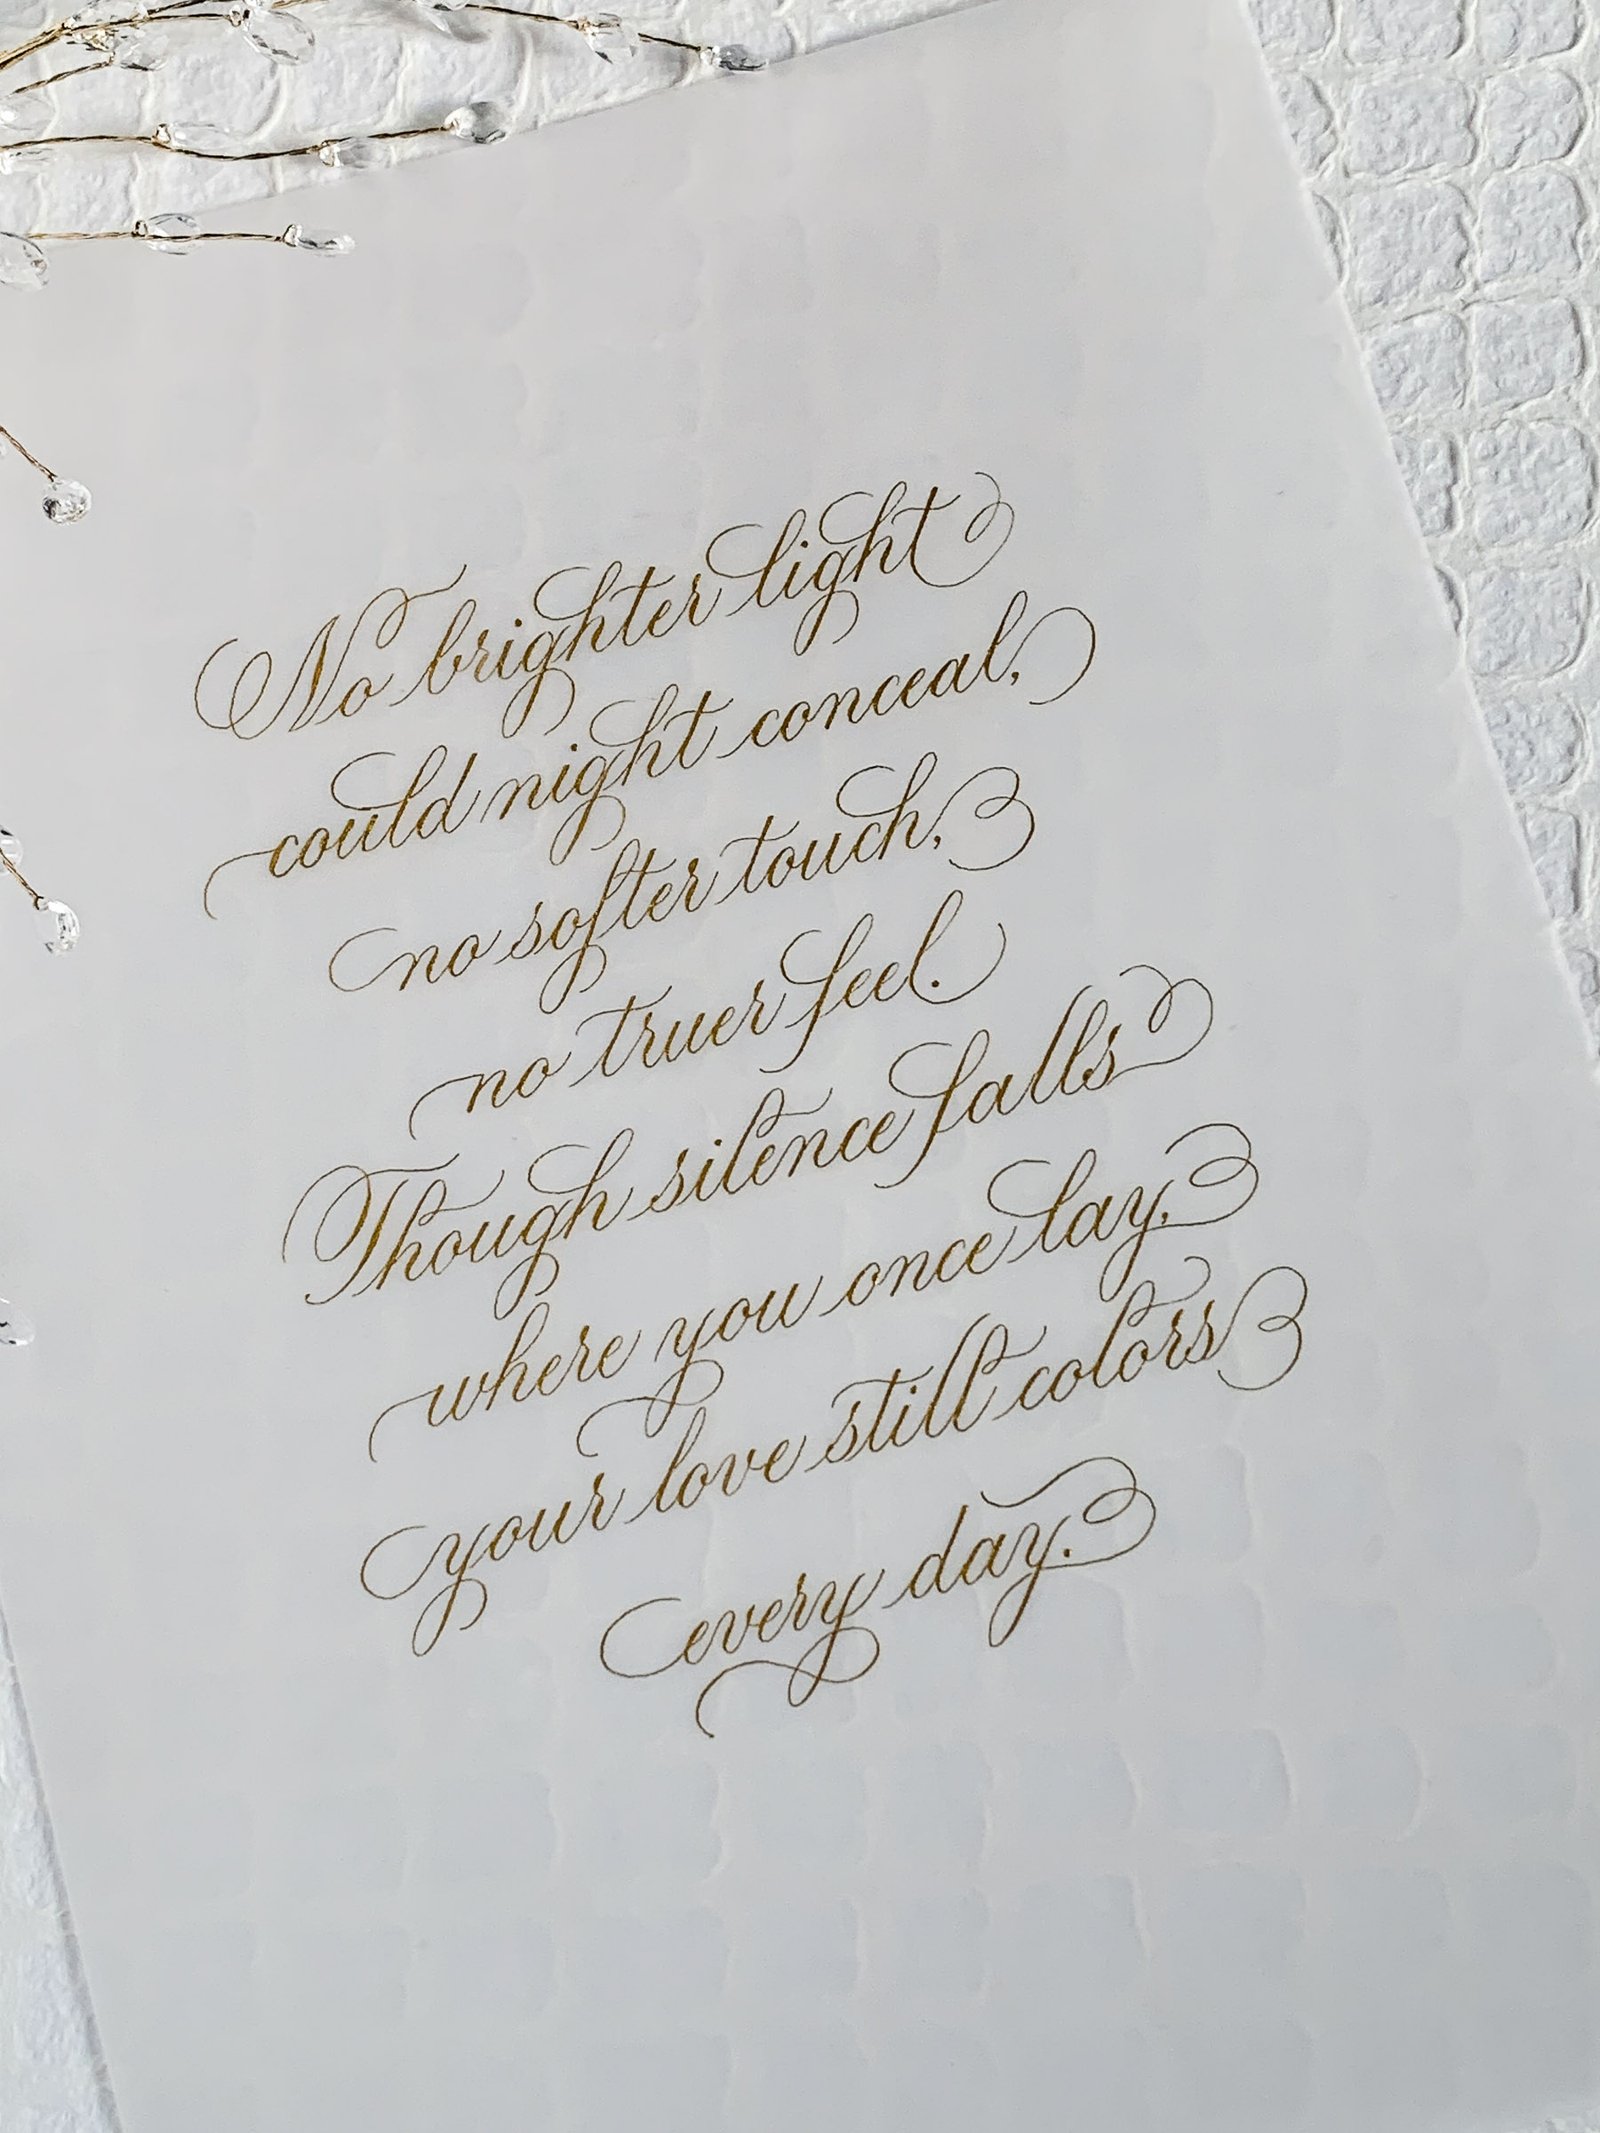 No brighter light
could night conceal,
no softer touch,
no truer feel.
Though silence falls
where you once lay,
your love still colors
every day.